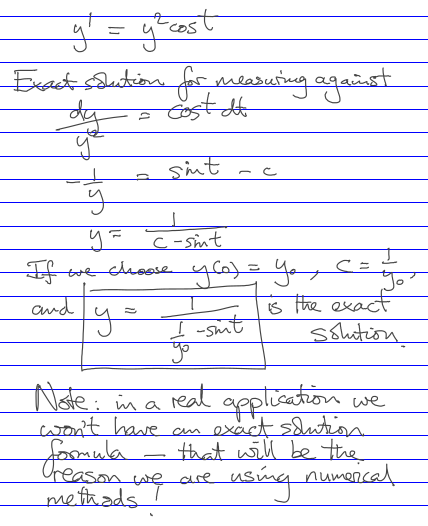 y' = y² cos t
Exact solution for measuring against
dy/y² = cos t dt
-1/y = sin t - c
y = 1/(c - sin t)
If we choose y(0) = y₀, c = 1/y₀,
and y = 1/(1/y₀ - sin t) is the exact
solution.
Note: in a real application we
won't have an exact solution
formula — that will be the
reason we are using numerical
methods!